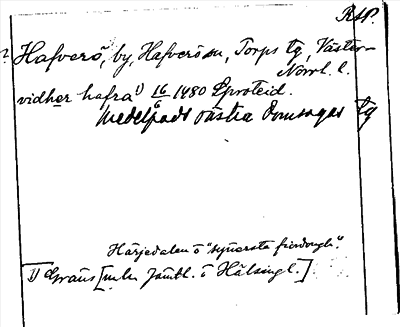 RAP.
? Hafverö, by, Hafverö sn, Torps tg, Väster-
Norrl. l.
vidher hafra 1) 16/6 1480
Medelpads västra domsagas tg
Härjedalen o "synersta fierdongh".
1) Gräns [m.ln Jämtl. o Hälsingl.]